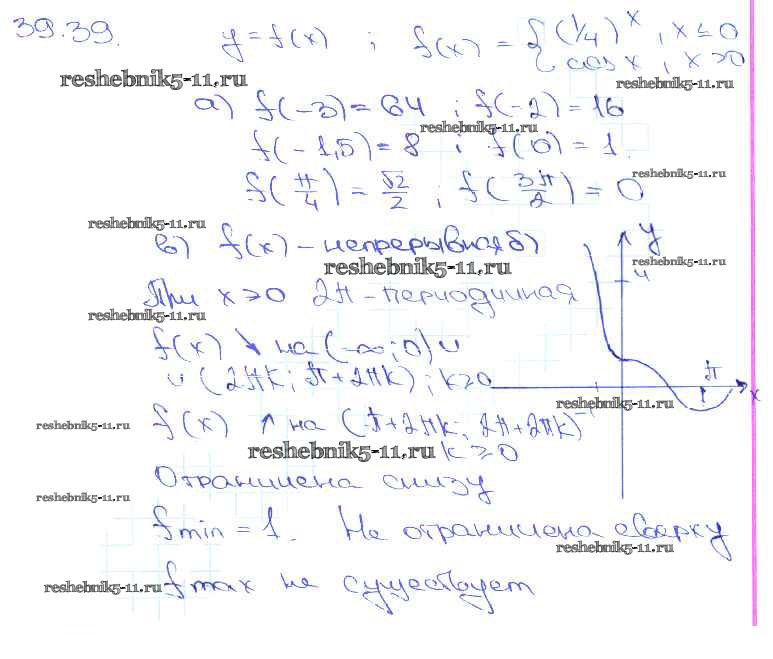 39.39. y = f(x) ; f(x) = { (1/4)^x , x ≤ 0
cos x , x > 0
reshebnik5-11.ru
reshebnik5-11.ru
а) f(-3) = 64 ; f(-2) = 16
reshebnik5-11.ru
f(-1,5) = 8 ; f(0) = 1.
reshebnik5-11.ru
f(π/4) = √2/2 ; f(3π/2) = 0
reshebnik5-11.ru
в) f(x) - непрерывная б)
y
reshebnik5-11.ru
reshebnik5-11.ru
4
При x > 0 2π - периодичная
reshebnik5-11.ru
f(x) ↘ на (-∞; 0) ∪
∪ (2πk; π + 2πk) ; k ≥ 0
π
x
reshebnik5-11.ru
reshebnik5-11.ru
f(x) ↑ на (π + 2πk; 2π + 2πk)
-1
reshebnik5-11.ru
k ≥ 0
Ограничена снизу
reshebnik5-11.ru
fmin = 1. Не ограничена сверху
reshebnik5-11.ru
reshebnik5-11.ru
fmax не существует